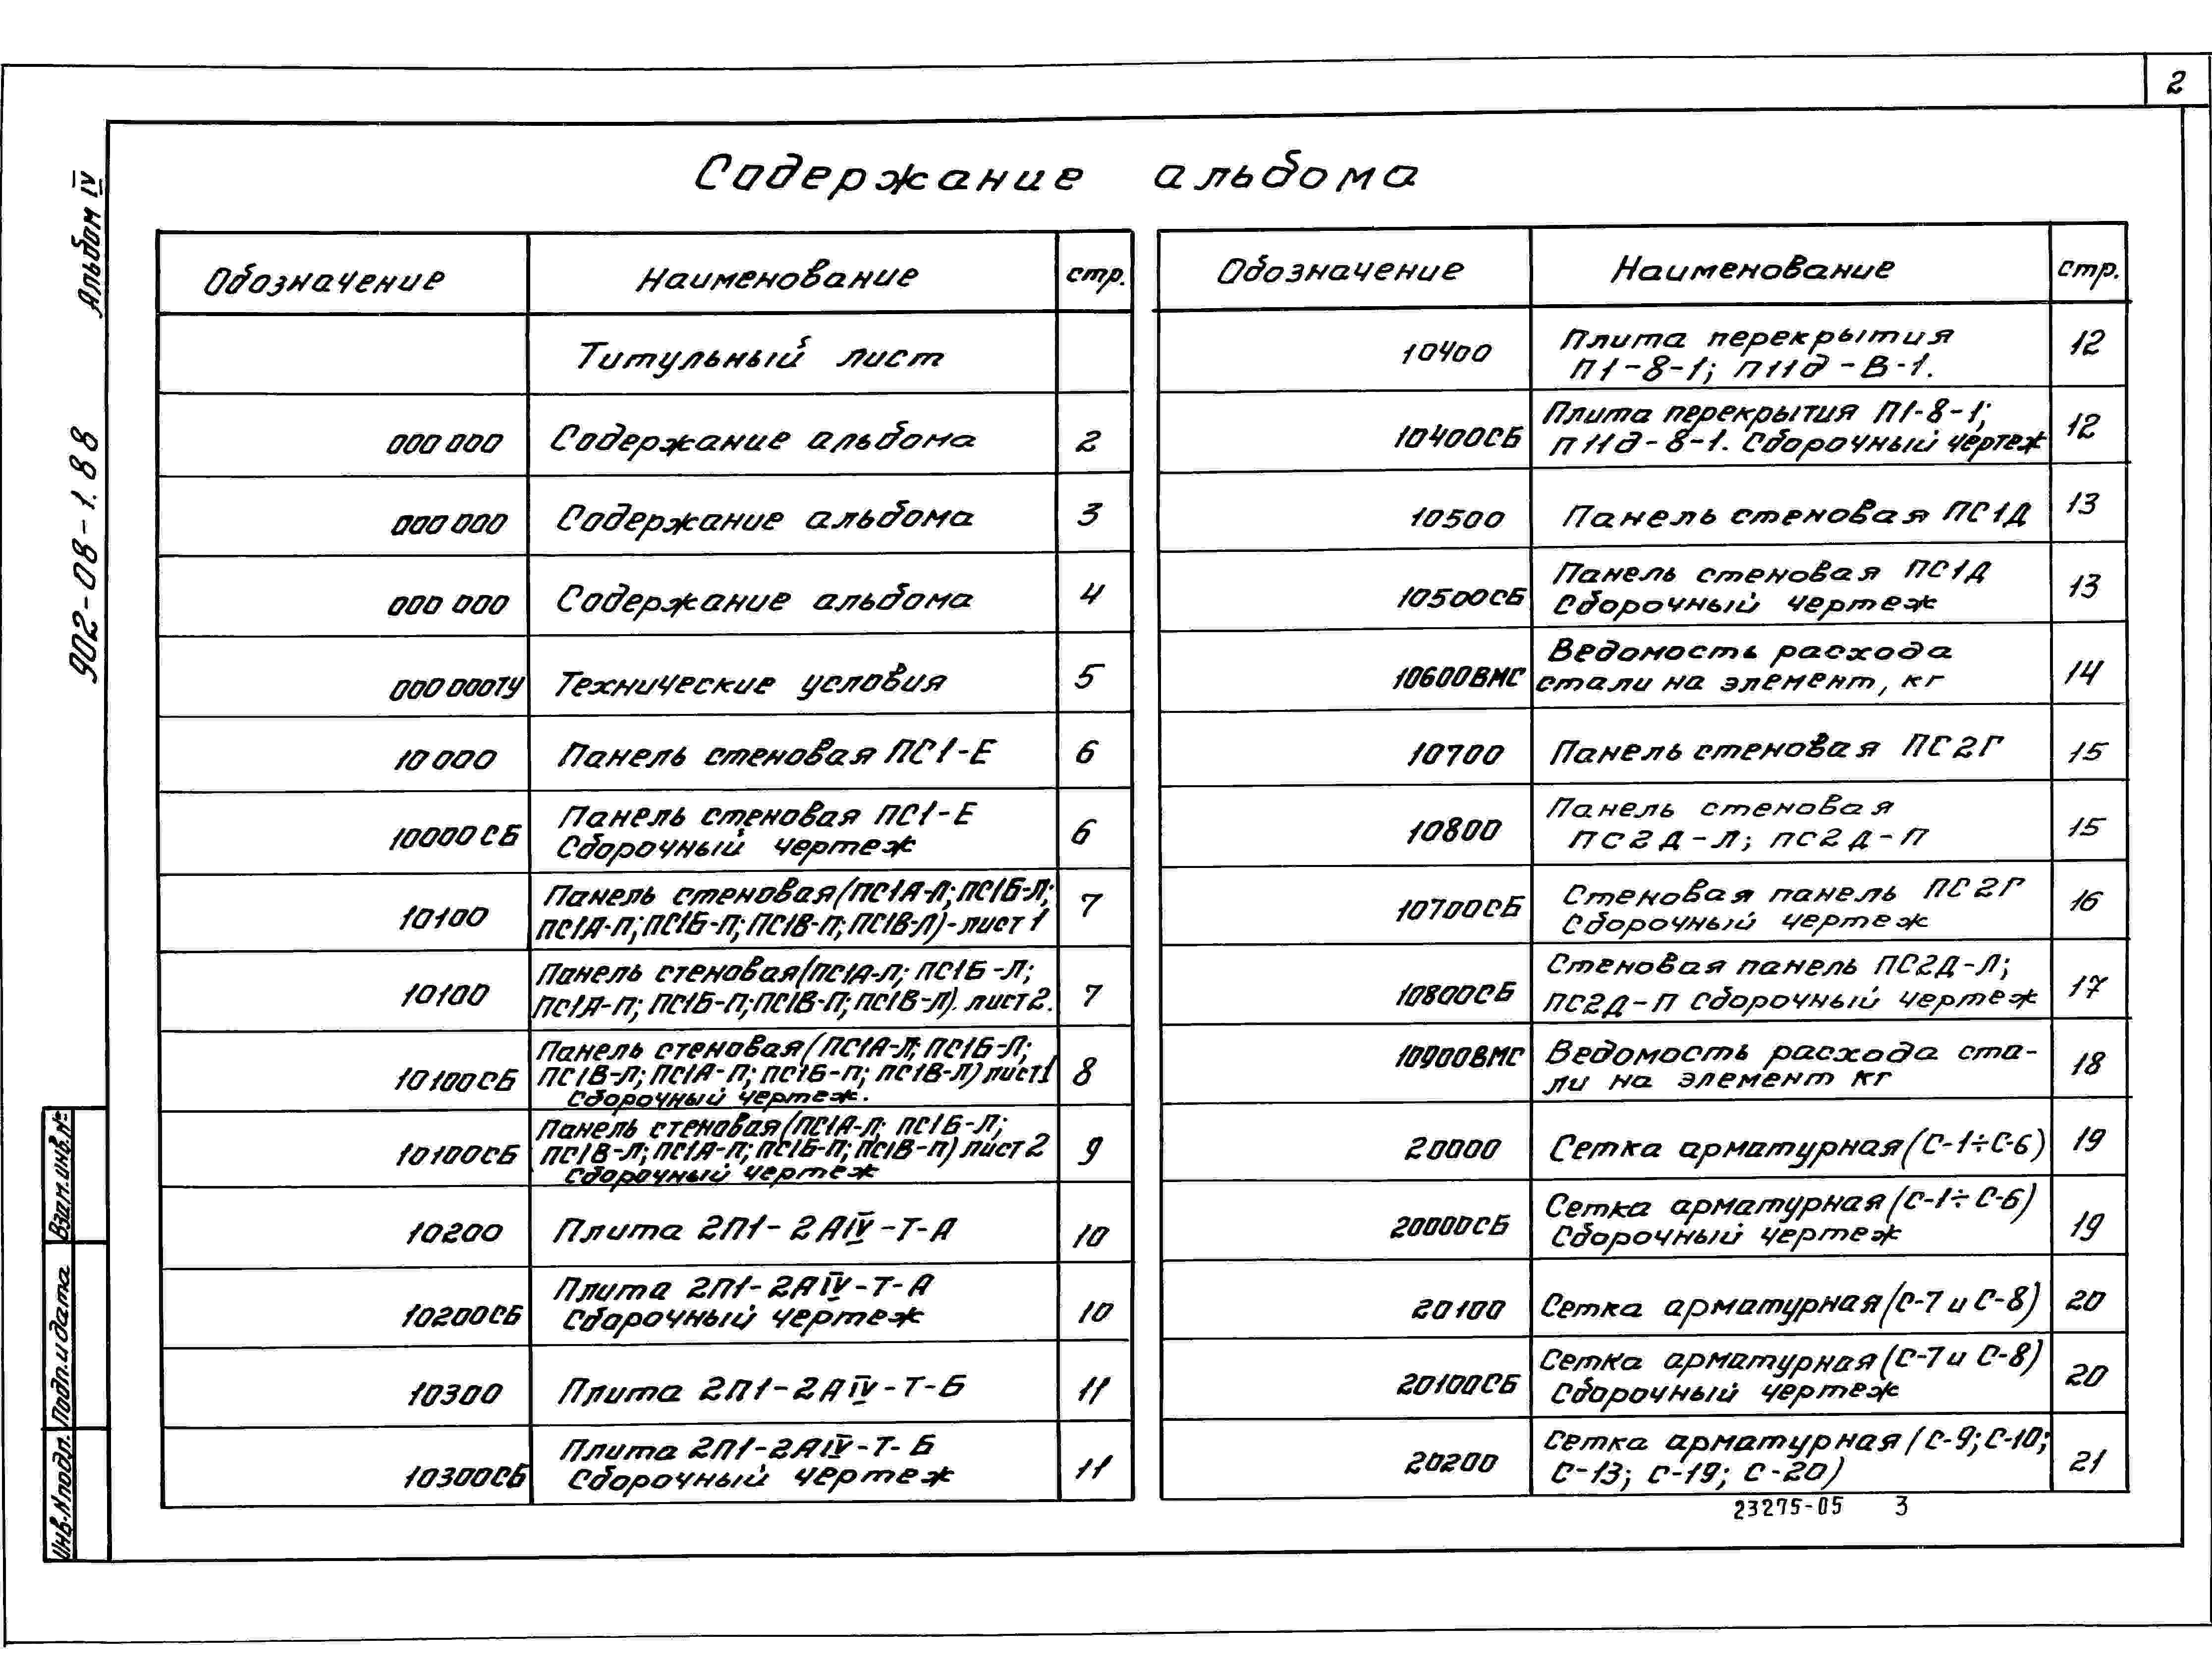 2
Содержание альбома
Альбом IV
902-08-1.88
Обозначение Наименование стр.
Титульный лист
000 000 Содержание альбома 2
000 000 Содержание альбома 3
000 000 Содержание альбома 4
000 000ТУ Технические условия 5
10 000 Панель стеновая ПС1-Е 6
10000СБ Панель стеновая ПС1-Е
Сборочный чертеж 6
10100 Панель стеновая (ПС1А-Л; ПС1Б-Л;
ПС1А-П; ПС1Б-П; ПС1В-П; ПС1В-Л)-лист 1 7
10100 Панель стеновая (ПС1А-Л; ПС1Б-Л;
ПС1А-П; ПС1Б-П; ПС1В-П; ПС1В-Л). лист 2. 7
10100СБ Панель стеновая (ПС1А-Л; ПС1Б-Л;
ПС1В-Л; ПС1А-П; ПС1Б-П; ПС1В-Л) лист 1
Сборочный чертеж. 8
10100СБ Панель стеновая (ПС1А-Л; ПС1Б-Л;
ПС1В-Л; ПС1А-П; ПС1Б-П; ПС1В-П) лист 2
Сборочный чертеж 9
10200 Плита 2П1-2АIV-Т-А 10
10200СБ Плита 2П1-2АIV-Т-А
Сборочный чертеж 10
10300 Плита 2П1-2АIV-Т-Б 11
10300СБ Плита 2П1-2АIV-Т-Б
Сборочный чертеж 11
Обозначение Наименование стр.
10400 Плита перекрытия
П1-8-1; П11д-В-1. 12
10400СБ Плита перекрытия П1-8-1;
П11д-8-1. Сборочный чертеж 12
10500 Панель стеновая ПС1Д 13
10500СБ Панель стеновая ПС1Д
Сборочный чертеж 13
10600ВМС Ведомость расхода
стали на элемент, кг 14
10700 Панель стеновая ПС2Г 15
10800 Панель стеновая
ПС2Д-Л; ПС2Д-П 15
10700СБ Стеновая панель ПС2Г
Сборочный чертеж 16
10800СБ Стеновая панель ПС2Д-Л;
ПС2Д-П Сборочный чертеж 17
10900ВМС Ведомость расхода ста-
ли на элемент кг 18
20000 Сетка арматурная (С-1÷С-6) 19
20000СБ Сетка арматурная (С-1÷С-6)
Сборочный чертеж 19
20100 Сетка арматурная (С-7 и С-8) 20
20100СБ Сетка арматурная (С-7 и С-8)
Сборочный чертеж 20
20200 Сетка арматурная (С-9; С-10;
С-13; С-19; С-20) 21
23275-05 3
Взам.инв.№
Подп.и дата
Инв.N подл.